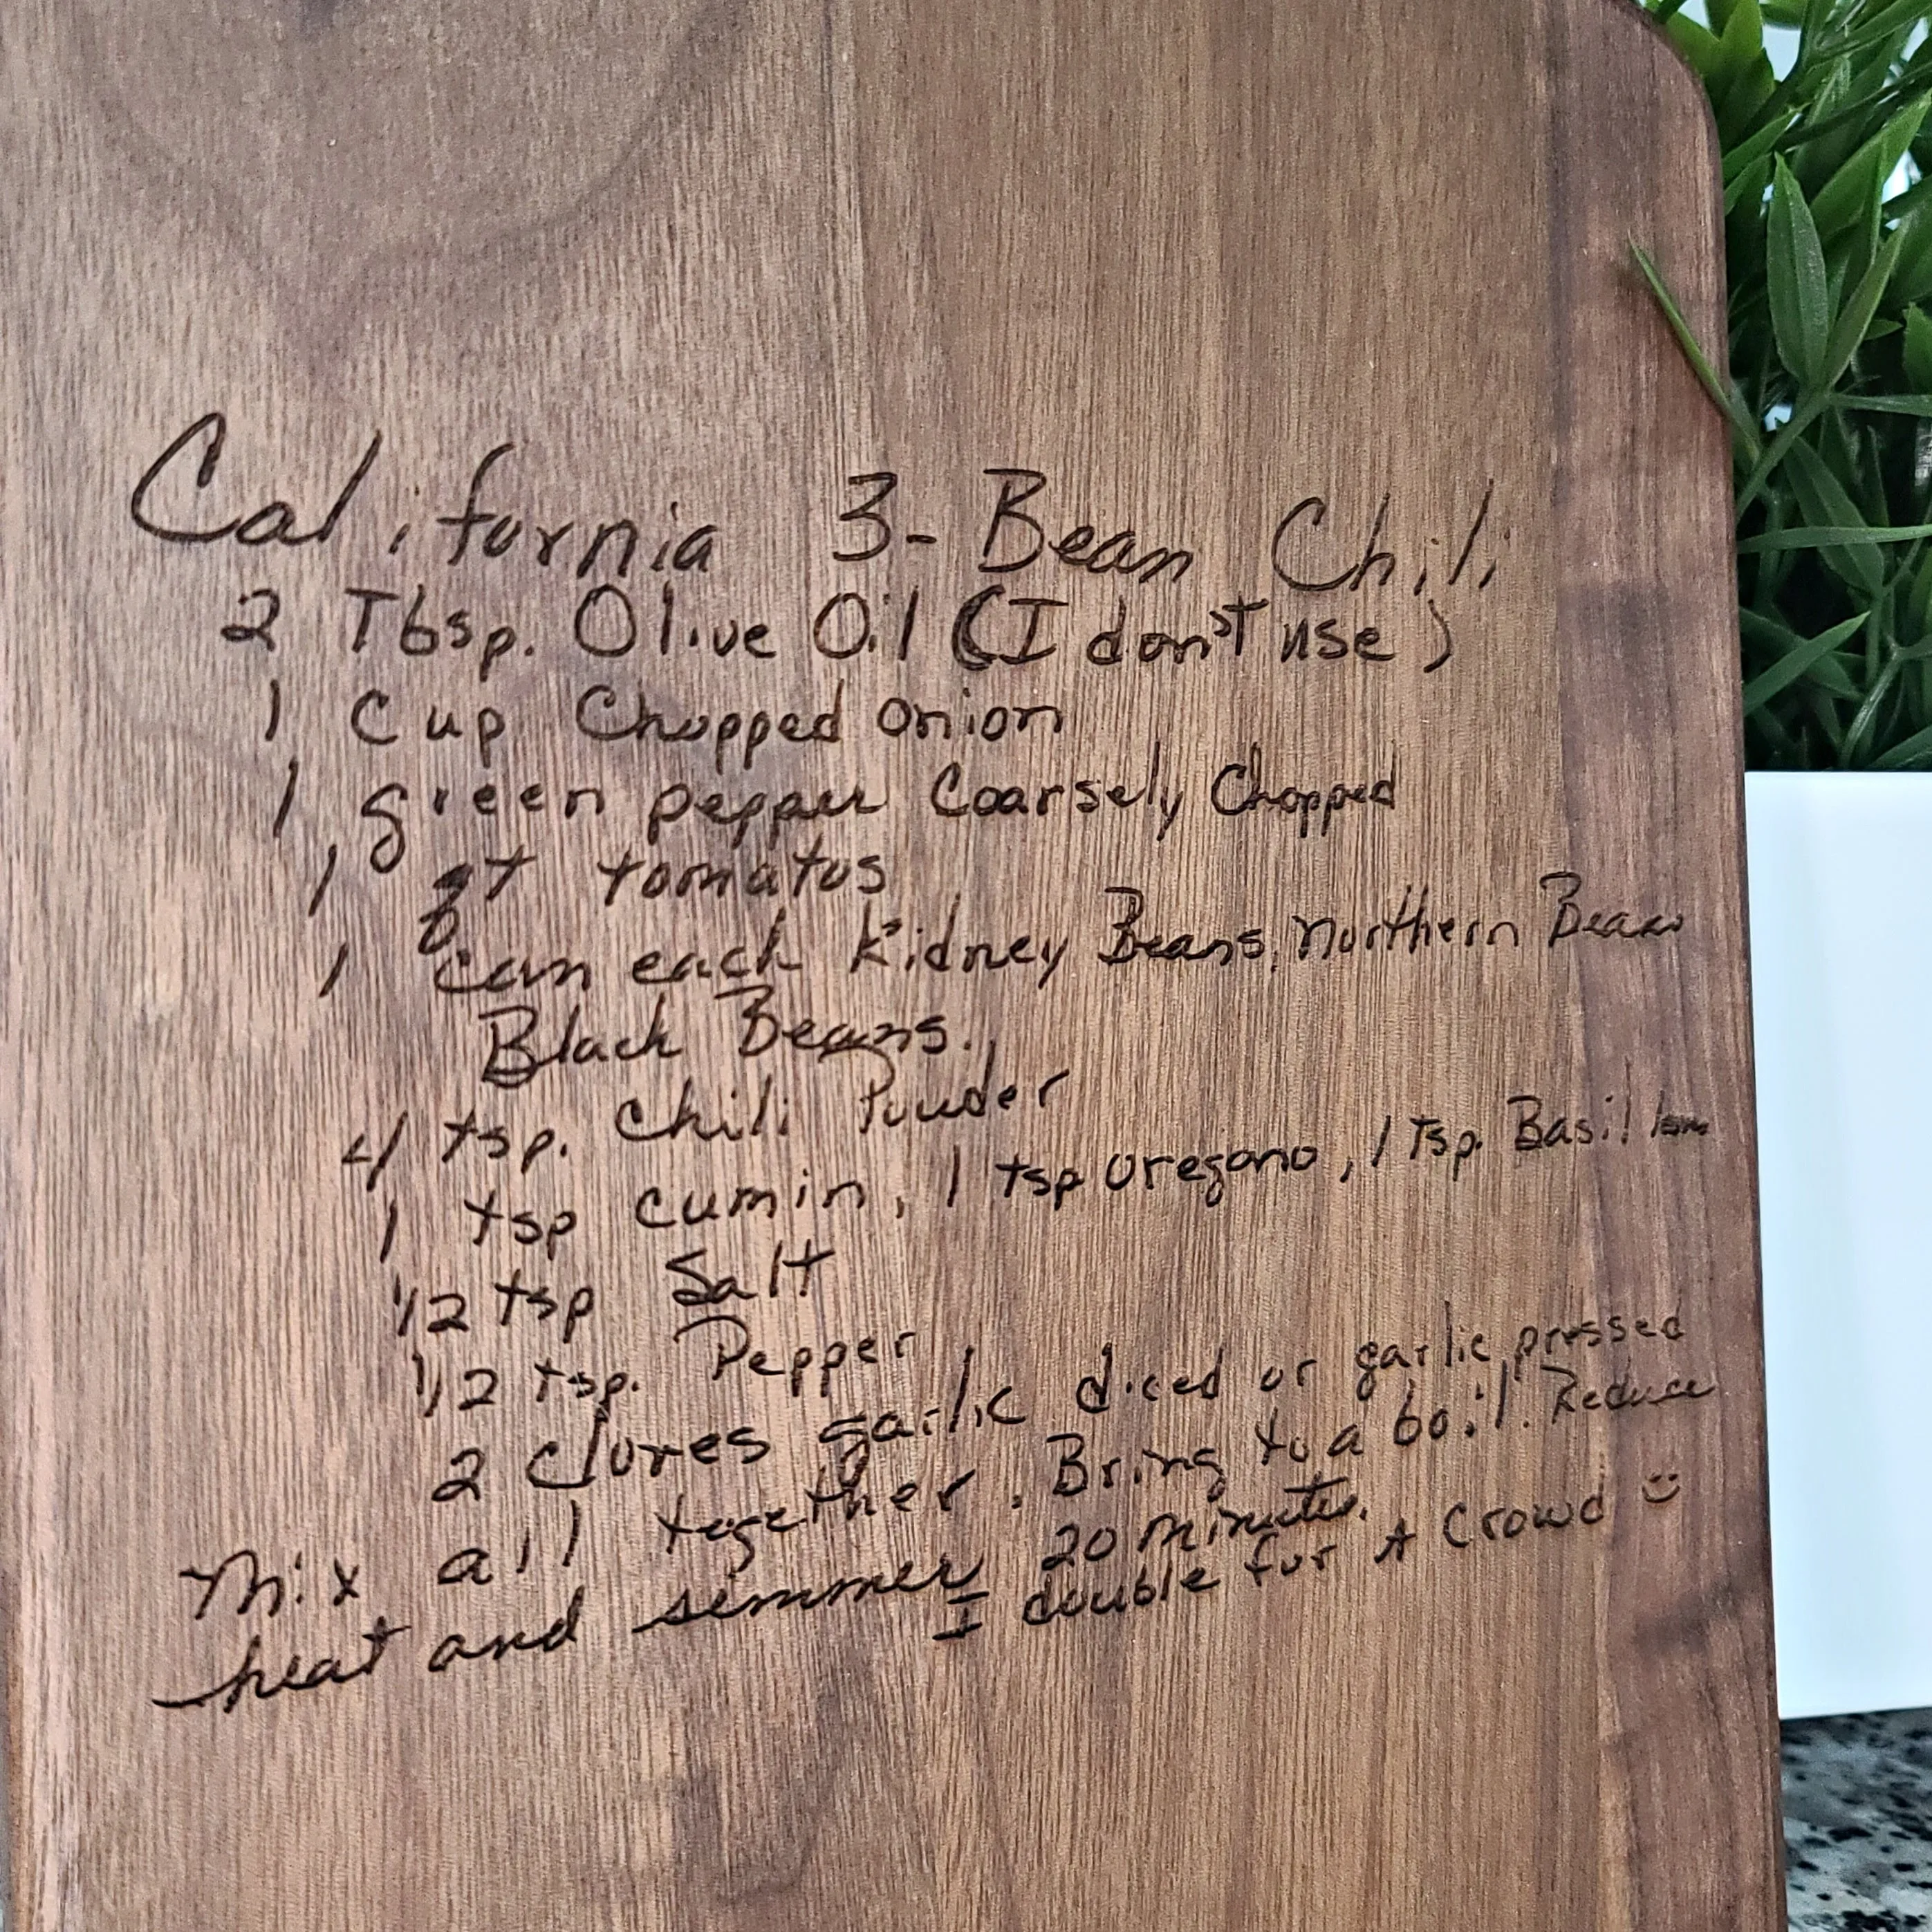 California 3-Bean Chili
2 Tbsp. Olive Oil (I don't use)
1 Cup Chopped onion
1 green pepper Coarsely Chopped
1 qt tomatos
1 can each Kidney Beans, Northern Beans
Black Beans.
4 tsp. Chili Powder
1 tsp cumin, 1 tsp oregano, 1 Tsp. Basil
1/2 tsp Salt
1/2 tsp. Pepper
2 cloves garlic diced or garlic pressed
Mix all together. Bring to a boil. Reduce
heat and simmer 20 minutes.
I double for A Crowd :)